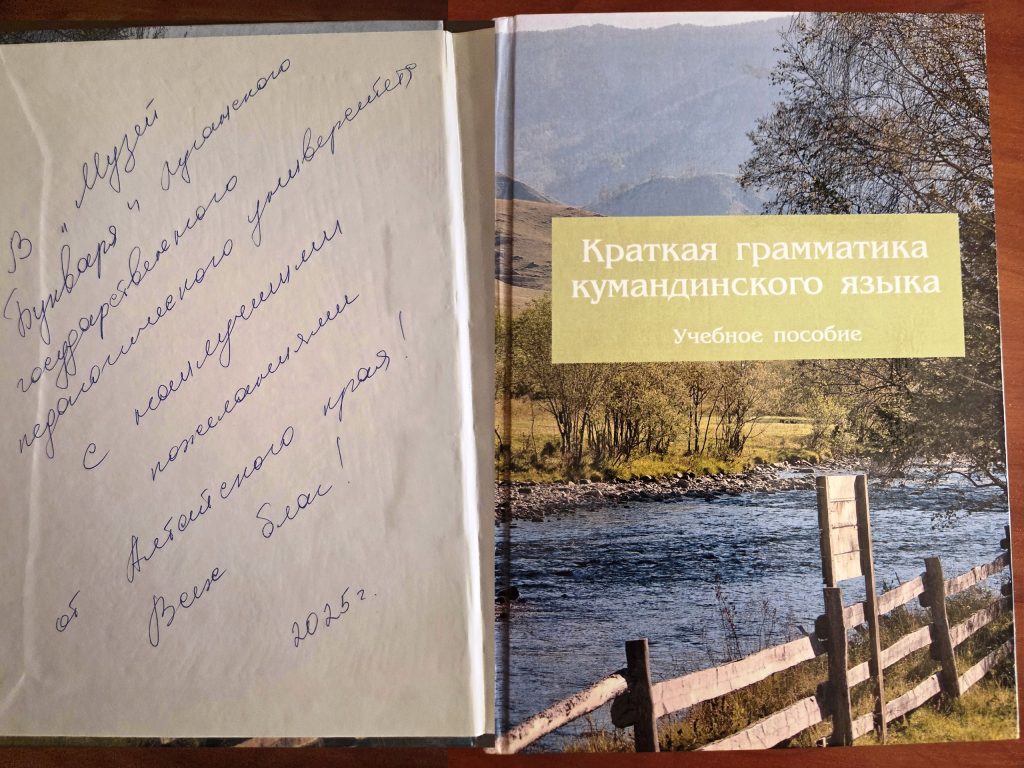 В "Музей
Букваря" Луганского
государственного
педагогического университета
с наилучшими
пожеланиями
от Алтайского края!
Всех благ!
2025г.
Краткая грамматика
кумандинского языка
Учебное пособие